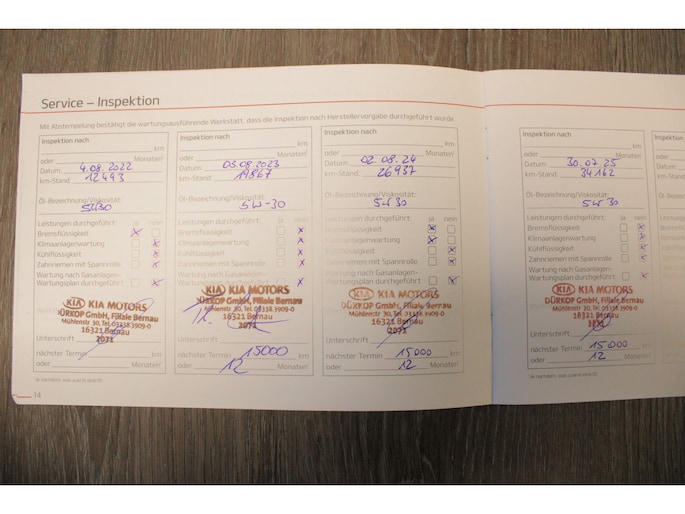 Service – Inspektion
Mit Abstempelung bestätigt die wartungsausführende Werkstatt, dass die Inspektion nach Herstellervorgabe durchgeführt wurde
Inspektion nach
km
oder Monaten¹
Datum: 4.08.2022
km-Stand: 12493
Öl-Bezeichnung/Viskosität:
5W30
Leistungen durchgeführt: ja nein
Bremsflüssigkeit
Klimaanlagenwartung
Kühlflüssigkeit
Zahnriemen mit Spannrolle
Wartung nach Gasanlagen-
Wartungsplan durchgeführt
KIA KIA MOTORS
DÜRKOP GmbH, Filiale Bernau
Mühlenstr 30, Tel. 03338 3909-0
16321 Bernau
2071
Unterschrift
nächster Termin km
oder Monaten¹
14
Inspektion nach
km
oder Monaten¹
Datum: 03.08.2023
km-Stand: 19867
Öl-Bezeichnung/Viskosität:
5W-30
Leistungen durchgeführt: ja nein
Bremsflüssigkeit
Klimaanlagenwartung
Kühlflüssigkeit
Zahnriemen mit Spannrolle
Wartung nach Gasanlagen-
Wartungsplan durchgeführt
KIA KIA MOTORS
DÜRKOP GmbH, Filiale Bernau
Mühlenstr 30, Tel. 03338 3909-0
16321 Bernau
2071
Unterschrift
nächster Termin 15000 km
oder 12 Monaten¹
Inspektion nach
km
oder Monaten¹
Datum: 02.08.24
km-Stand: 26937
Öl-Bezeichnung/Viskosität:
5W30
Leistungen durchgeführt: ja nein
Bremsflüssigkeit
Klimaanlagenwartung
Kühlflüssigkeit
Zahnriemen mit Spannrolle
Wartung nach Gasanlagen-
Wartungsplan durchgeführt
KIA KIA MOTORS
DÜRKOP GmbH, Filiale Bernau
Mühlenstr 30, Tel. 03338 3909-0
16321 Bernau
2071
Unterschrift
nächster Termin 15000 km
oder 12 Monaten¹
Inspektion nach
km
oder Monaten¹
Datum: 30.07.25
km-Stand: 34162
Öl-Bezeichnung/Viskosität:
5W30
Leistungen durchgeführt: ja nein
Bremsflüssigkeit
Klimaanlagenwartung
Kühlflüssigkeit
Zahnriemen mit Spannrolle
Wartung nach Gasanlagen-
Wartungsplan durchgeführt
KIA KIA MOTORS
DÜRKOP GmbH, Filiale Bernau
Mühlenstr 30, Tel. 03338 3909-0
16321 Bernau
Unterschrift
nächster Termin 15000 km
oder 12 Monaten¹